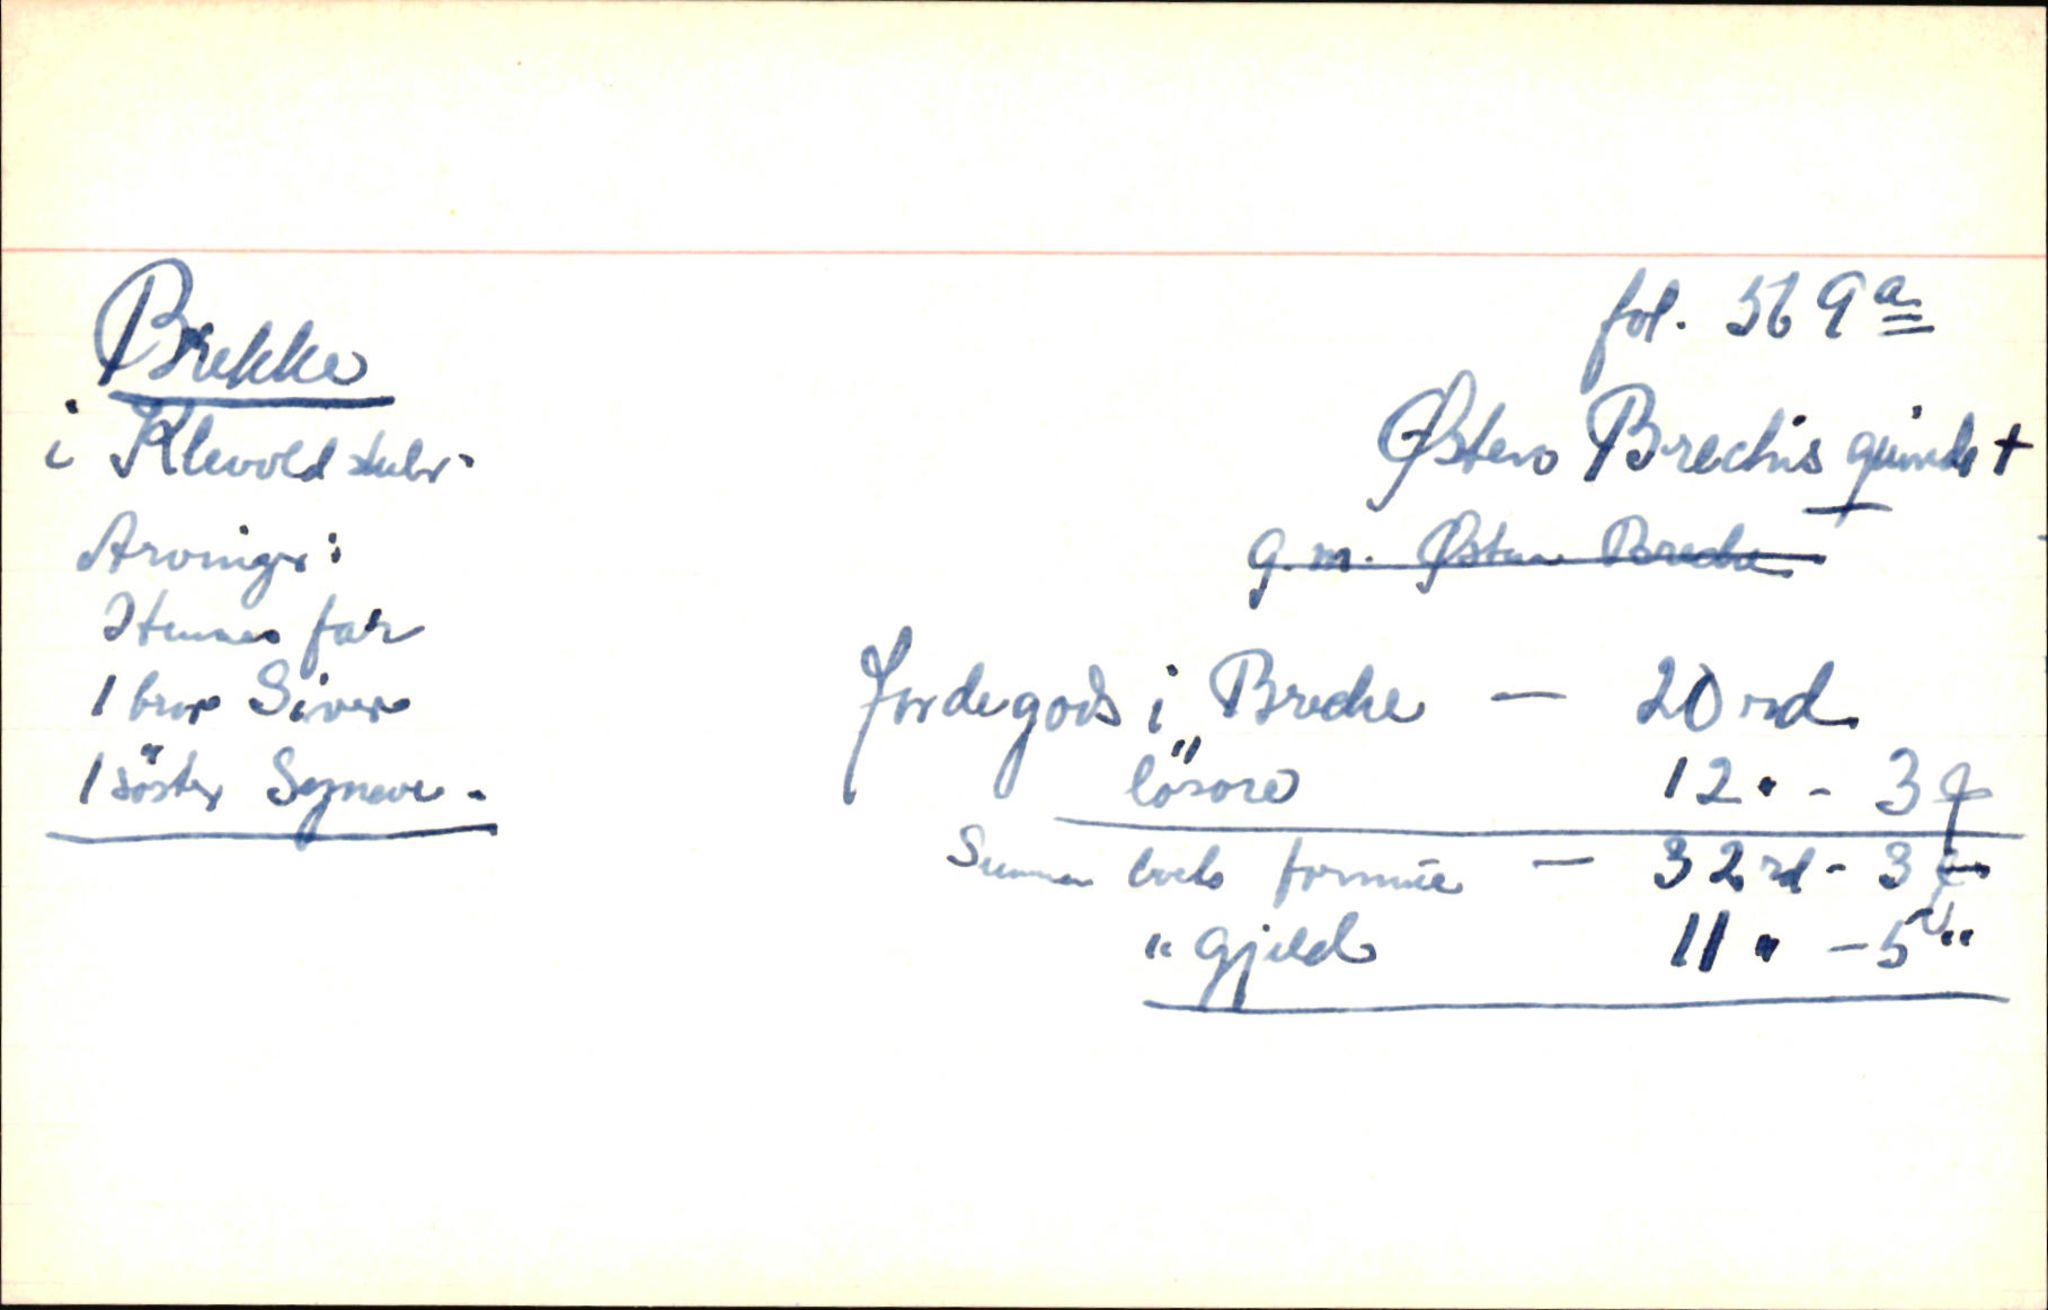 fol. 569a
Brekke
i Klevold
Østens Breches quinde +
g.m. Østen Breche
Arvinger:
Hennes far
1 bror Siver
1 söster Segneve.
Jordegods i Breche — 20 rd.
" lösöre 12 " - 3 q
Summa boets formue — 32 rd - 3 q
" gjeld 11 " - 5 "